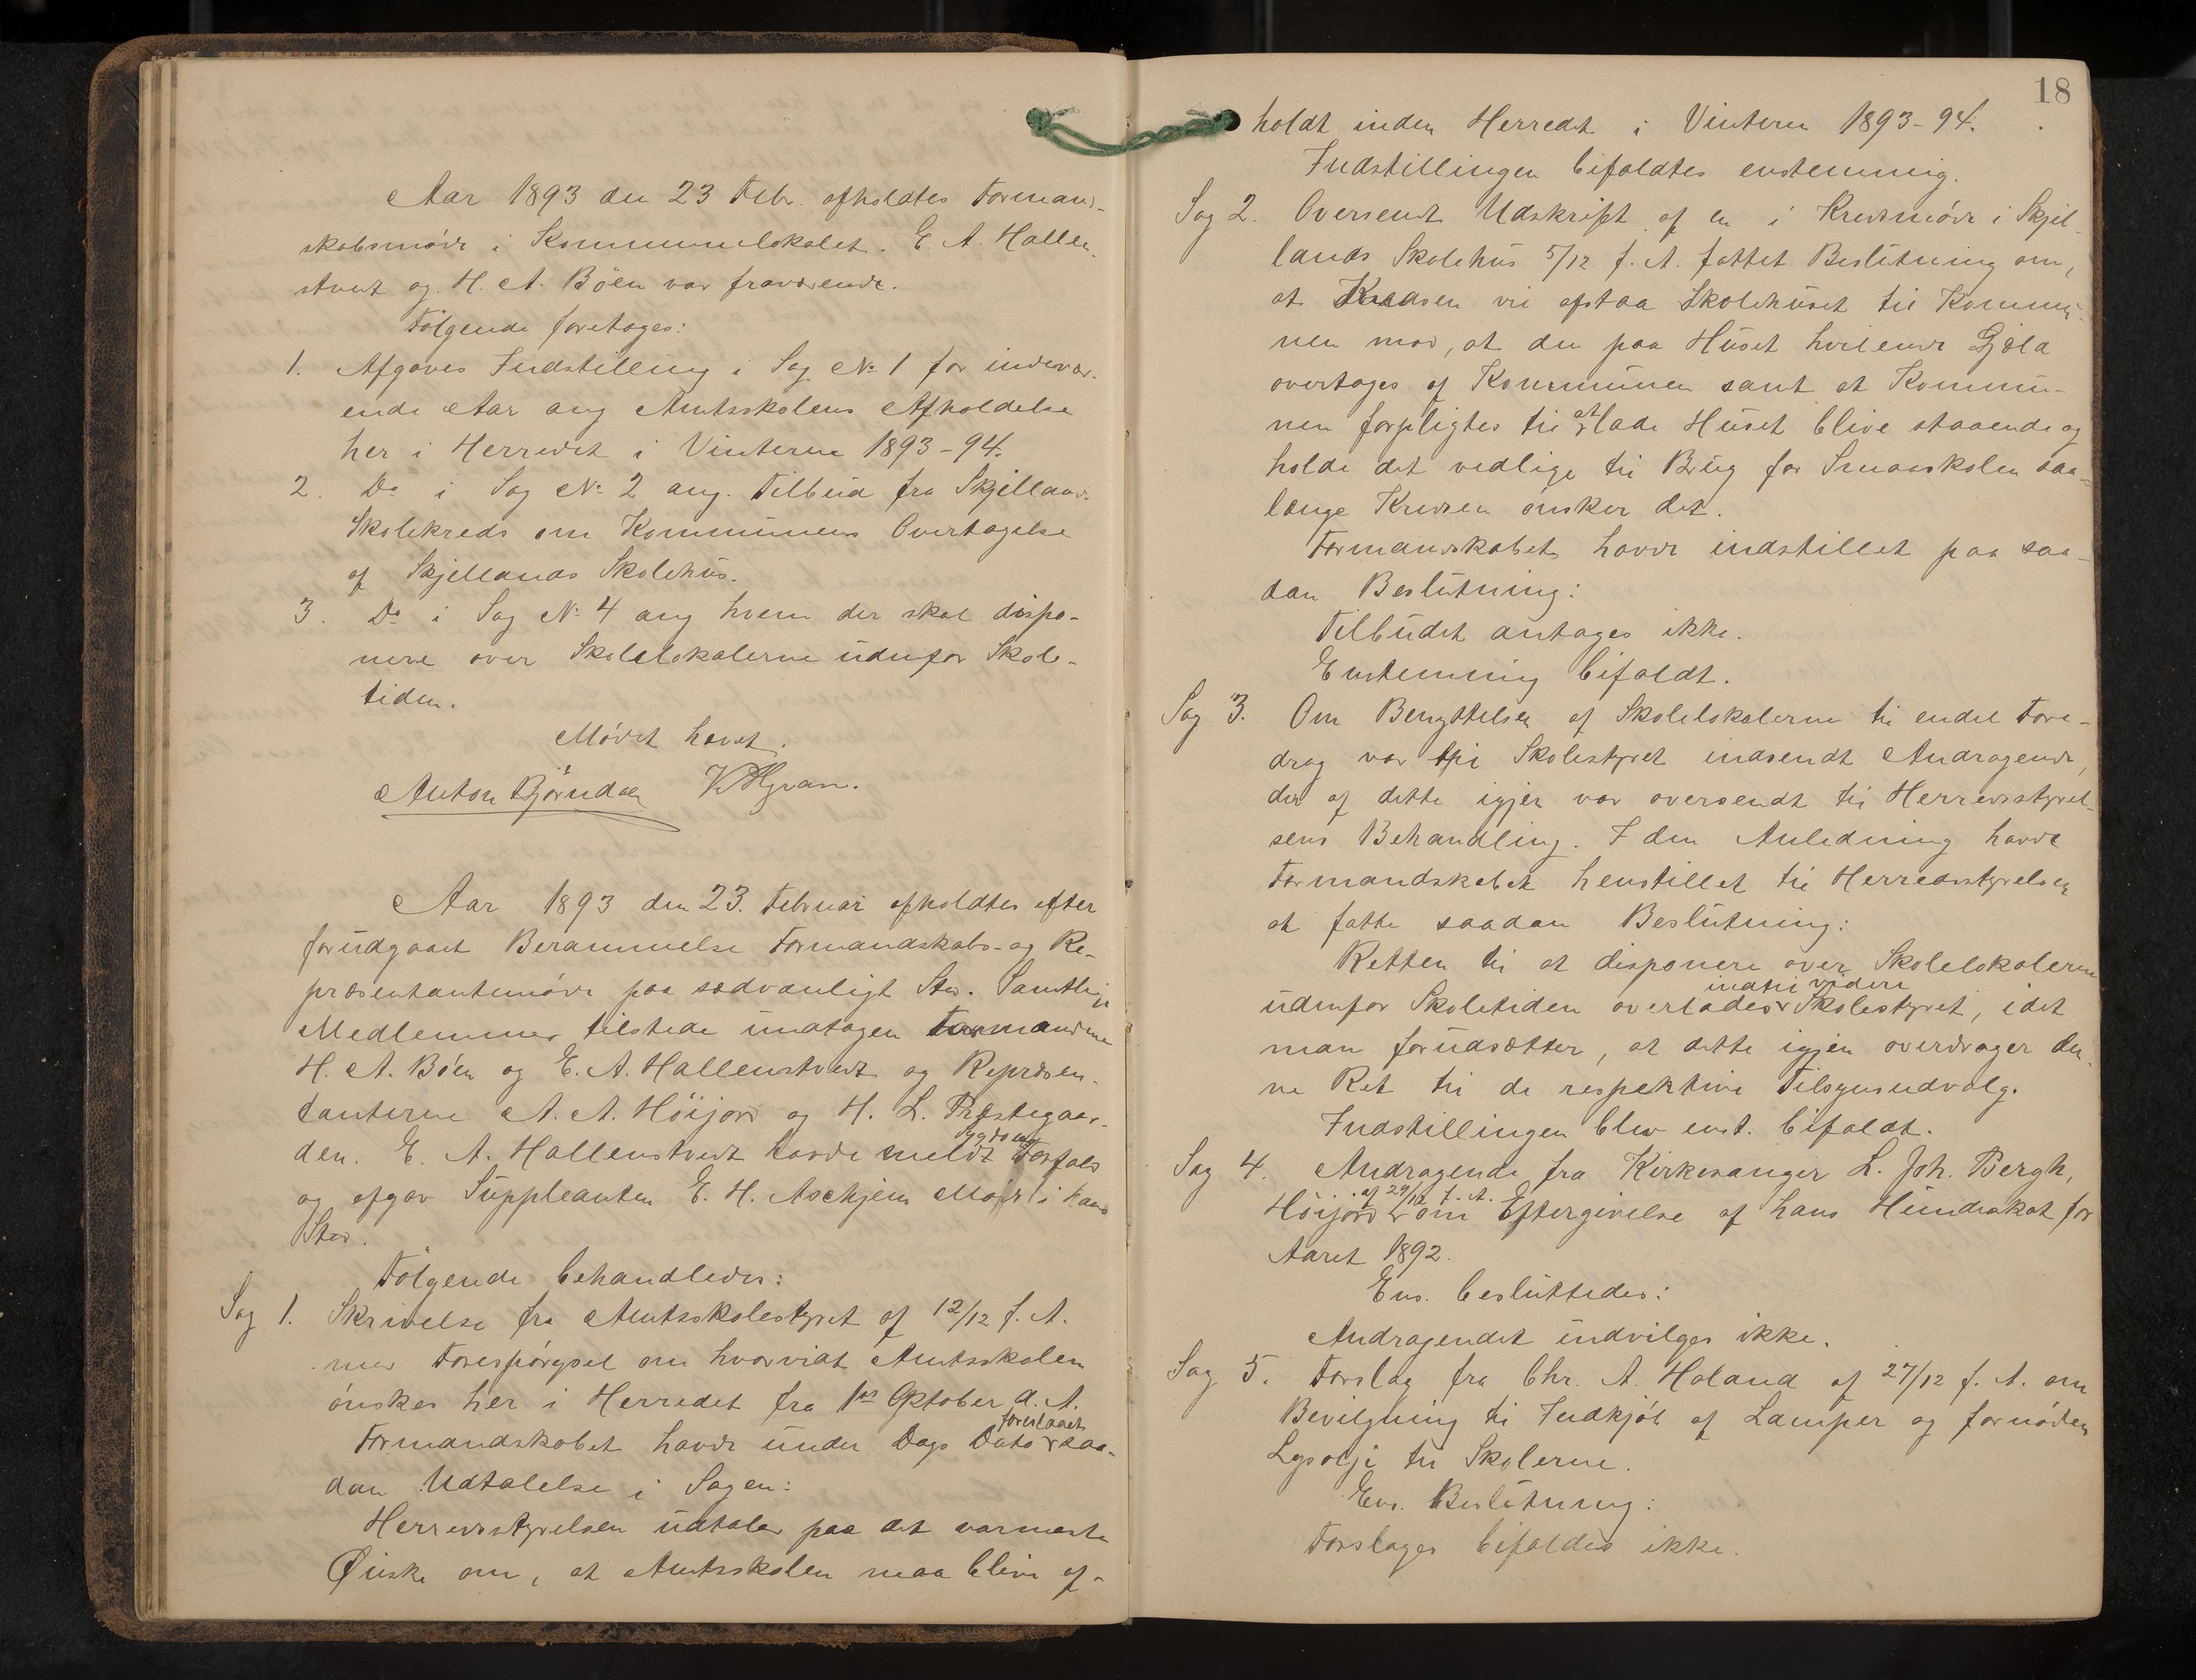 Aar 1893 den 23 Febr. afholdtes Formand-
skabsmöde i Kommunelokalet. E. A. Hallen-
stvedt og H. A. Böen var fraværende.
Fölgende foretoges:
1. Afgaves Indstilling i Sag No 1 for indevær-
ende Aar ang Amtsskolens Afholdelse
her i Herredet i Vinteren 1893-94.
2. Do i Sag No 2 ang. Tilbud fra Skjelland
Skolekreds om Kommunens Overtagelse
af Skjellands Skolehus.
3. Do i Sag No 4 ang hvem der skal dispo-
nere over Skolelokalerne udenfor Skole-
tiden.
Mödet hævet.
Anton Björndalen KHgran.
Aar 1893 den 23. Februar afholdtes efter
forudgaaet Berammelse Formandskabs- og Re-
præsentantemöde paa sædvanligt Sted. Samtlige
Medlemmer tilstede undtagen Formændene
H. A. Böen og E. A. Hallenstvedt og Repræsen-
tanterne A. A. Höijord og H. L. Præstegaar-
den. E. A. Hallenstvedt havde meldt sygdoms Forfald
og afgav Suppleanten E. H. Askjem Möde i hans
Sted.
Fölgende behandledes:
Sag 1. Skrivelse fra Amtsskolestyret af 12/12 f. A.
med Forespörgsel om hvorvidt Amtsskolen
önskes her i Herredet fra 1ste Oktober d. A.
Formandskabet havde under Dags Dato foreslaaet saa-
dan Udtalelse i Sagen:
Herredsstyrelsen udtaler paa det varmeste
Önske om, at Amtsskolen maa blive af-
18
holdt inden Herredet i Vinteren 1893-94.
Indstillingen bifaldtes enstemmig.
Sag 2. Oversendt Udskrift af en i Kredsmöde i Skjel-
lands Skolehus 5/12 f. A. fattet Beslutning om,
at Kredsen vil afstaa Skolehuset til Kommu-
nen mod, at den paa Huset hvilende Gjæld
overtages af Kommunen samt at Kommu-
nen forpligtes til at lade Huset blive staaende og
holde det vedlige til Brug for Smaaskolen saa-
længe Kredsen önsker det.
Formandskabet havde indstillet paa saa-
dan Beslutning:
Tilbudet antages ikke.
Enstemmig bifaldt.
Sag 3. Om Benyttelsen af Skolelokalerne til endel Fore-
drag var til Skolestyret indsendt Andragende,
der af dette igjen var oversendt til Herredsstyrel-
sens Behandling. I den Anledning havde
Formandskabet henstillet til Herredsstyrelsen
at fatte saadan Beslutning:
Retten til at disponere over Skolelokalerne
udenfor Skoletiden overlades indtil videre Skolestyret, idet
man forudsætter, at dette igjen overdrager den-
ne Ret til de respektive Tilsynsudvalg.
Indstillingen blev enst. bifaldt.
Sag 4. Andragende fra Kirkesanger L. Joh. Bergh,
Höijord af 29/12 f. A. om Eftergivelse af hans Hundeskat for
Aaret 1892.
Ens. besluttedes:
Andragendet indvilges ikke.
Sag 5. Forslag fra Chr. A. Holand af 27/12 f. A. om
Bevilgning til Indkjöb af Lamper og fornöden
Lysolje til Skolerne.
Ens. Beslutning:
Forslaget bifaldes ikke.